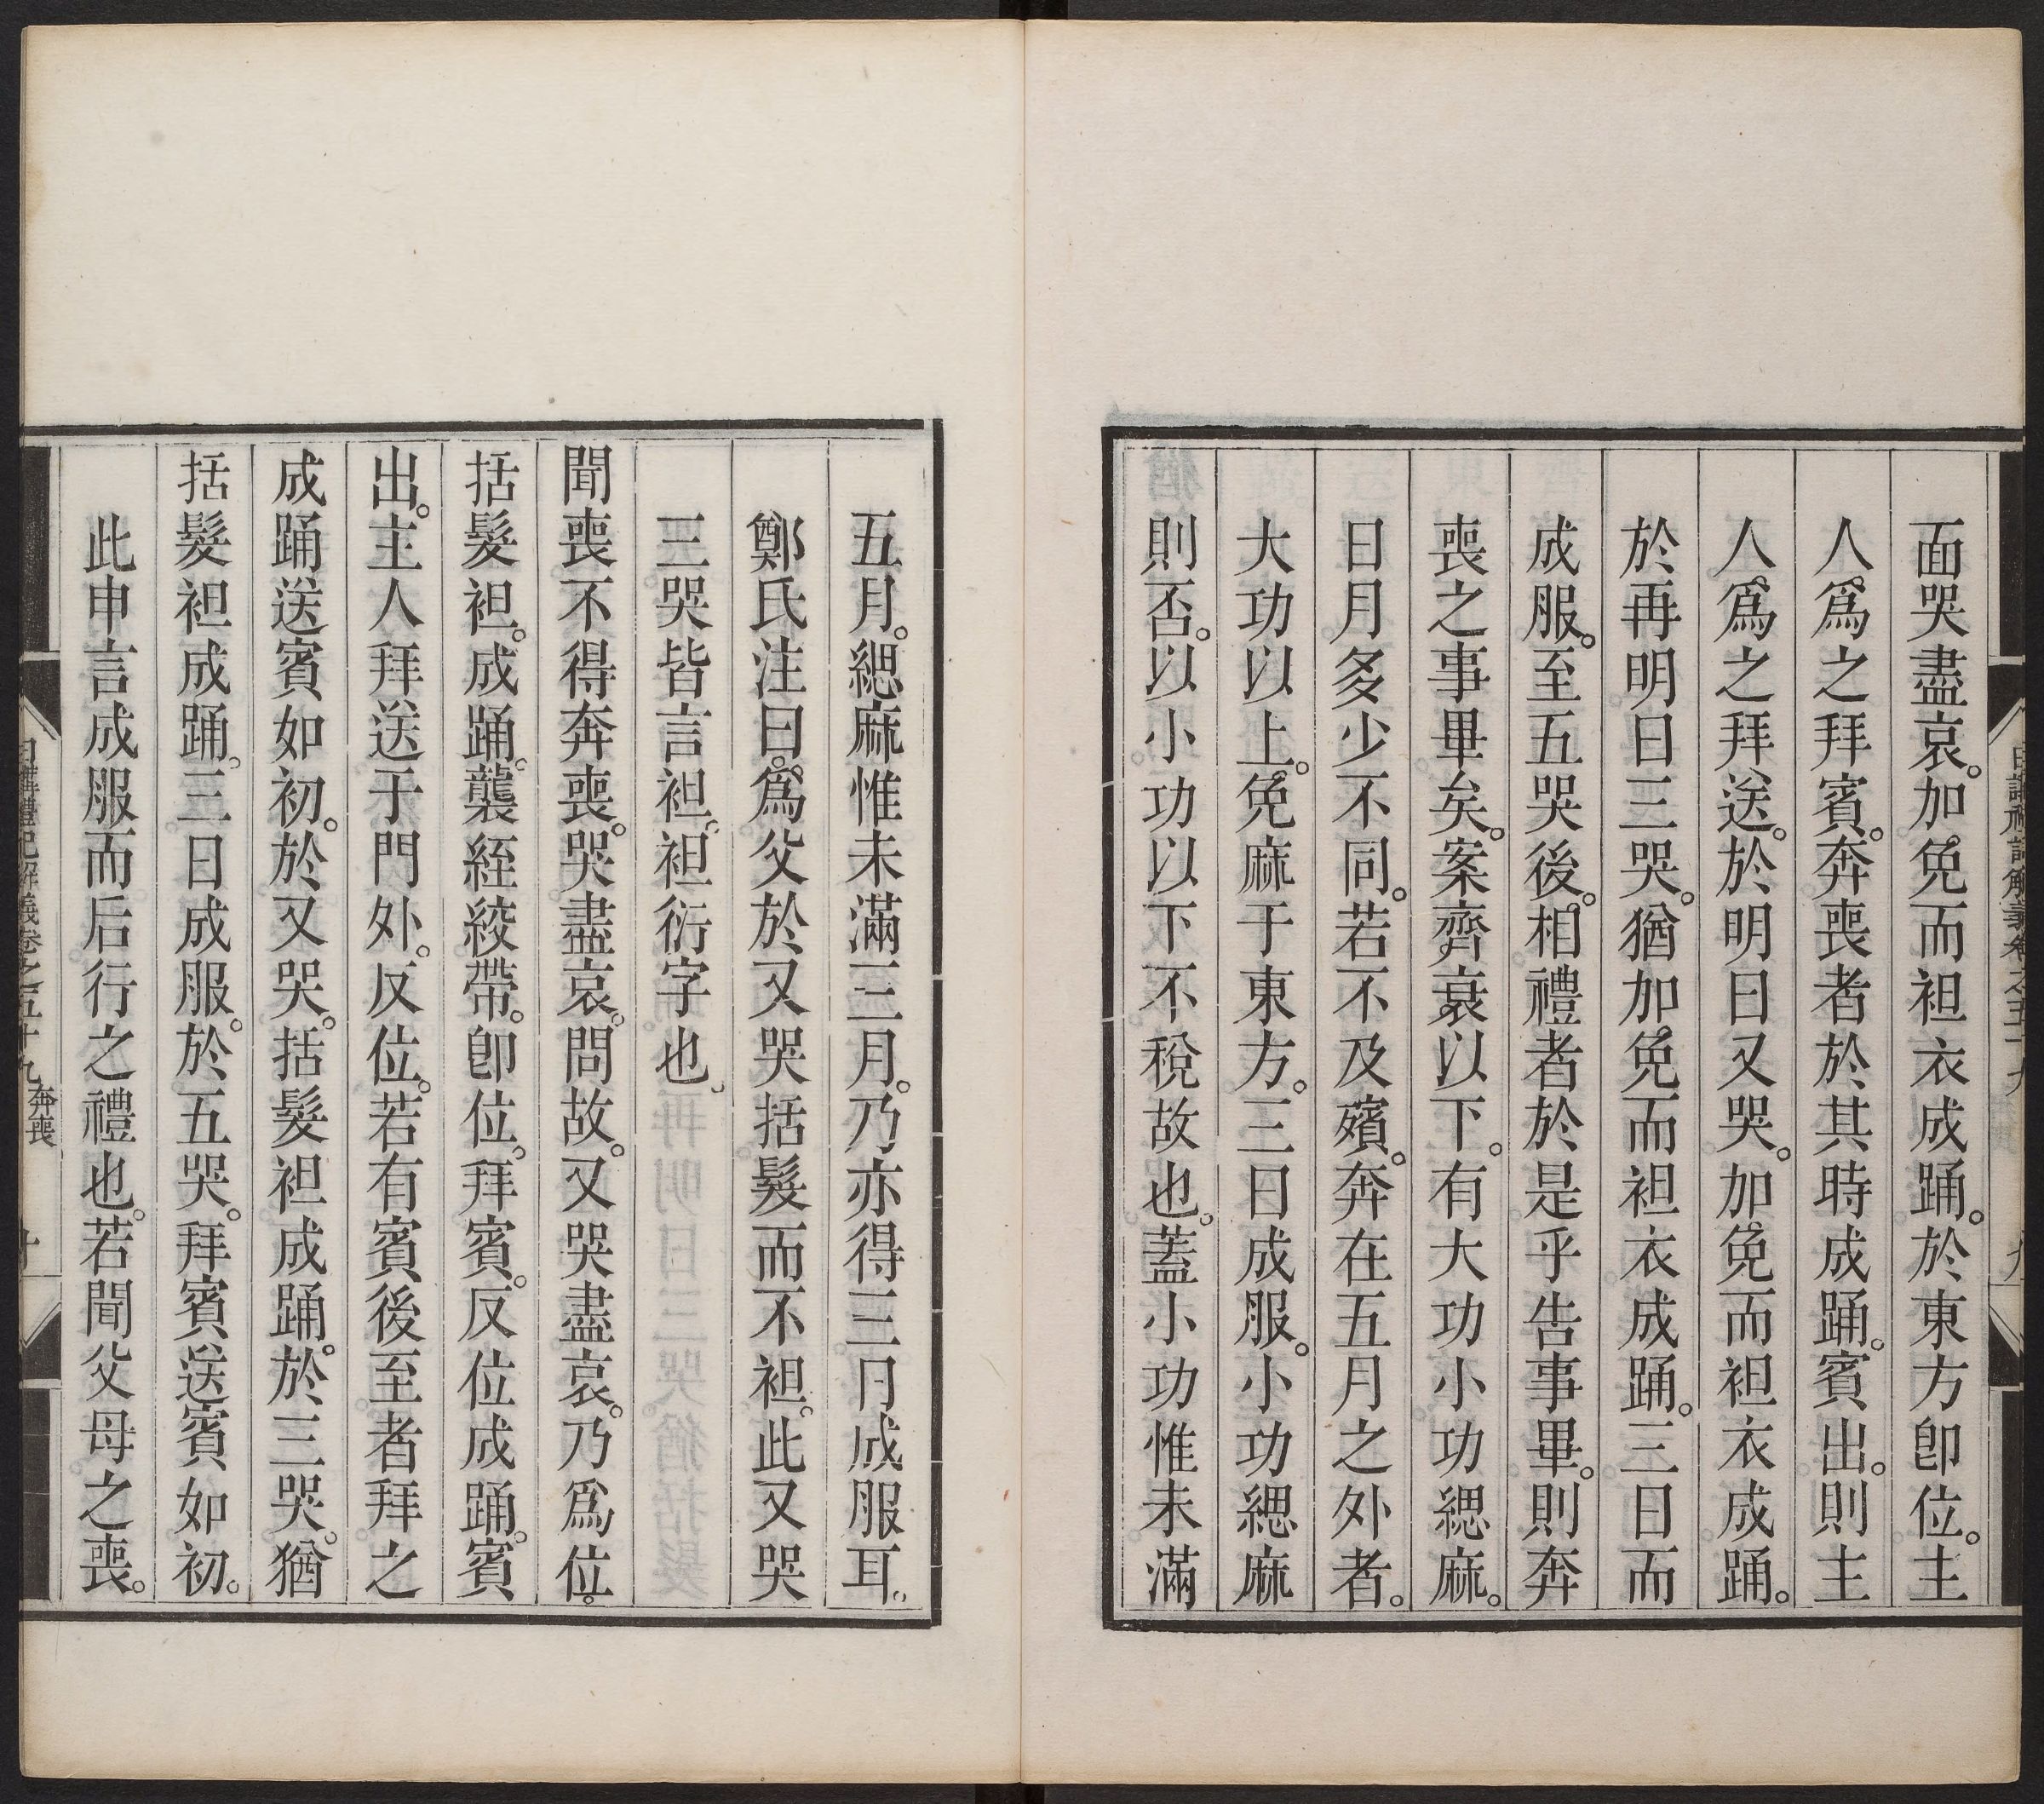 面哭盡哀。加免而袒衣成踊。於東方卽位。主
人爲之拜賓。奔喪者於其時成踊。賓出。則主
人爲之拜送。於明日又哭。加免而袒衣成踊。
於再明日三哭。猶加免而袒衣成踊。三日而
成服。至五哭後。相禮者於是乎告事畢。則奔
喪之事畢矣。案齊衰以下。有大功小功緦麻。
日月多少不同。若不及殯。奔在五月之外者。
大功以上。免麻于東方。三日成服。小功緦麻
則否。以小功以下不稅故也。蓋小功惟未滿
五月。緦麻惟未滿三月。乃亦得三月成服耳。
鄭氏注曰。爲父於又哭括髮而不袒。此又哭
三哭皆言袒。袒衍字也。
聞喪不得奔喪。哭盡哀。問故。又哭盡哀。乃爲位。
括髮袒。成踊。襲絰絞帶。卽位。拜賓。反位成踊。賓
出。主人拜送于門外。反位。若有賓後至者拜之
成踊送賓如初。於又哭。括髮袒成踊。於三哭。猶
括髮袒成踊。三日成服。於五哭。拜賓送賓如初。
此申言成服而后行之禮也。若聞父母之喪。
日講禮記解義卷之五十九 奔喪 十